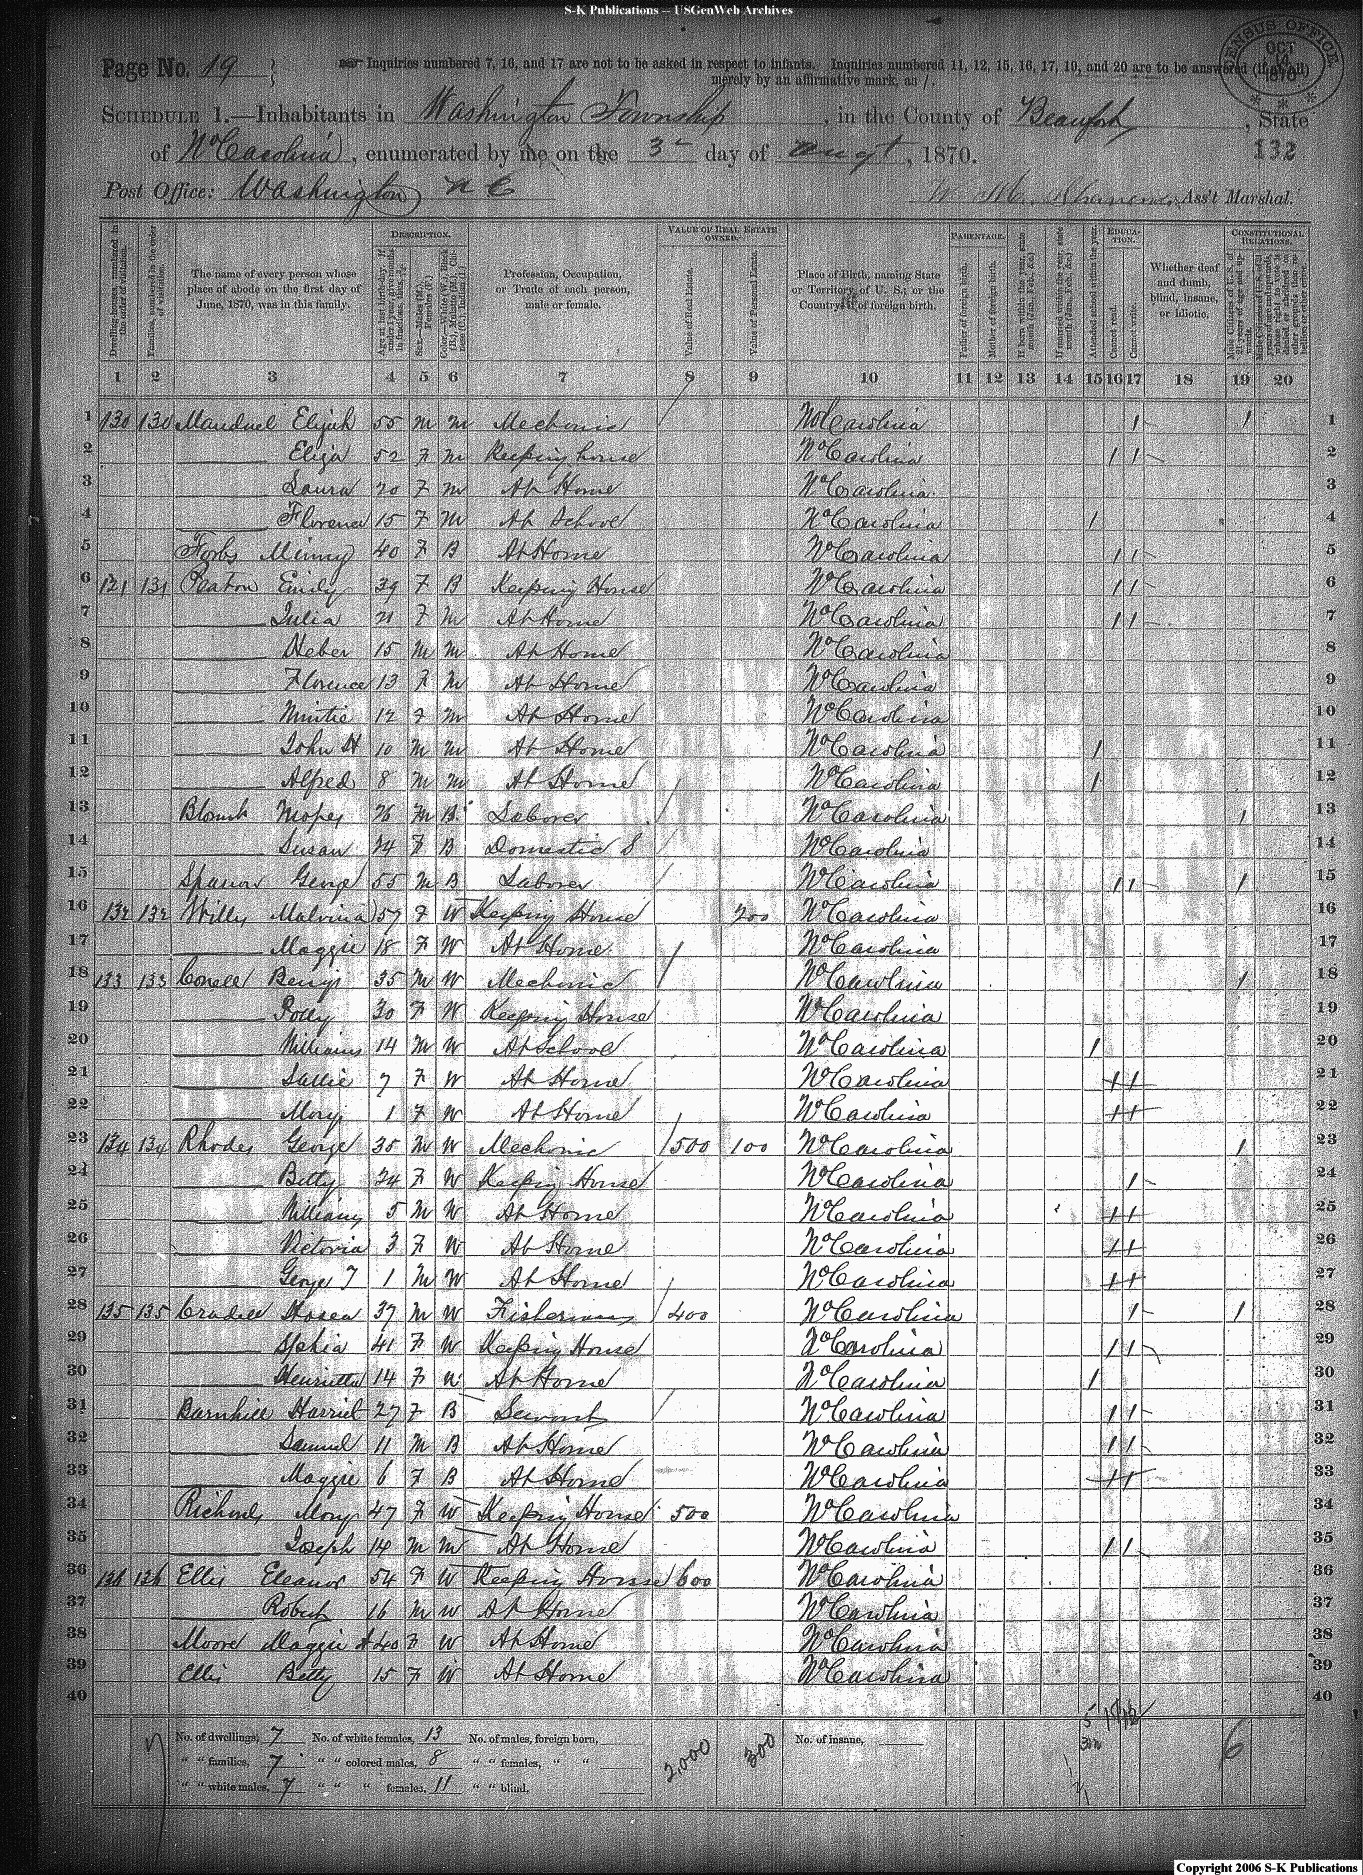 S-K Publications – USGenWeb Archives
Page No. 19
Inquiries numbered 7, 16, and 17 are not to be asked in respect to infants. Inquiries numbered 11, 12, 15, 16, 17, 19, and 20 are to be answered (if at all)
merely by an affirmative mark, as /.
CENSUS OFFICE
OCT
1870
SCHEDULE 1.—Inhabitants in Washington Township, in the County of Beaufort, State
of No Carolina, enumerated by me on the 3 day of Augt, 1870.
132
Post Office: Washington N C
Ass't Marshal.
DESCRIPTION.
VALUE OF REAL ESTATE OWNED.
PARENTAGE.
EDUCATION.
CONSTITUTIONAL RELATIONS.
Dwelling-houses, numbered in the order of visitation.
Families, numbered in the order of visitation.
The name of every person whose place of abode on the first day of June, 1870, was in this family.
Sex.—Males (M.), Females (F.)
Profession, Occupation, or Trade of each person, male or female.
Value of Real Estate.
Value of Personal Estate.
Place of Birth, naming State or Territory of U. S.; or the Country, if of foreign birth.
Father of foreign birth.
Mother of foreign birth.
If born within the year, state month (Jan., Feb., &c.)
If married within the year, state month (Jan., Feb., &c.)
Attended school within the year.
Cannot read.
Cannot write.
Whether deaf and dumb, blind, insane, or idiotic.
1 2 3 4 5 6 7 8 9 10 11 12 13 14 15 16 17 18 19 20
1 130 130 Elijah 55 M M Mechanic No Carolina / / 1
2 Eliza 52 F M Keeping house No Carolina / / 2
3 Laura 20 F M At Home No Carolina 3
4 Florence 15 F M At School No Carolina / 4
5 Forbs 40 F B At Home No Carolina / / 5
6 121 131 Emily 39 F B Keeping House No Carolina / / 6
7 Julia 21 F M At Home No Carolina / / 7
8 Heber 15 M M At Home No Carolina 8
9 Florence 13 F M At Home No Carolina 9
10 12 F M At Home No Carolina 10
11 John H 10 M M At Home No Carolina / 11
12 Alfred 8 M M At Home No Carolina / 12
13 M B Laborer No Carolina / 13
14 Susan F B Domestic S No Carolina 14
15 George 55 M B Laborer No Carolina / / / 15
16 132 132 Willy Malvina 57 F W Keeping House 200 No Carolina 16
17 Maggie 18 F W At Home No Carolina 17
18 133 133 Benj 35 M W Mechanic No Carolina / 18
19 Polly 30 F W Keeping House No Carolina 19
20 William 14 M W At School No Carolina / 20
21 Sallie 7 F W At Home No Carolina 21
22 Mary 1 F W At Home No Carolina 22
23 134 134 Rhodes George 35 M W Mechanic 500 100 No Carolina / 23
24 Betty 24 F W Keepin House No Carolina / 24
25 William 5 M W At Home No Carolina 25
26 Victoria 3 F W At Home No Carolina 26
27 George T 1 M W At Home No Carolina 27
28 135 135 Hosea 37 M W Fisherman 400 No Carolina / / 28
29 41 F W Keeping House No Carolina / / 29
30 Henrietta 14 F W At Home No Carolina / 30
31 Barnhill Harriet 27 F B Servant No Carolina / / 31
32 Samuel 11 M B At Home No Carolina / / 32
33 Maggie 6 F B At Home No Carolina 33
34 Richards Mary 47 F W Keeping House 500 No Carolina 34
35 Joseph 14 M M At Home No Carolina / / 35
36 136 136 Ellis Eleanor 54 F W Keeping House 600 No Carolina 36
37 Robert 16 M W At Home No Carolina 37
38 Moore Maggie A 40 F W At Home No Carolina 38
39 Ellis Betty 15 F W At Home No Carolina 39
40 40
No. of dwellings, 7 No. of white females, 13 No. of males, foreign born, No. of insane,
" " families, 7 " " colored males, 8 " " females, " "
" " white males, 7 " " " females, 11 " " blind.
2,000 300 6
Copyright 2006 S-K Publications